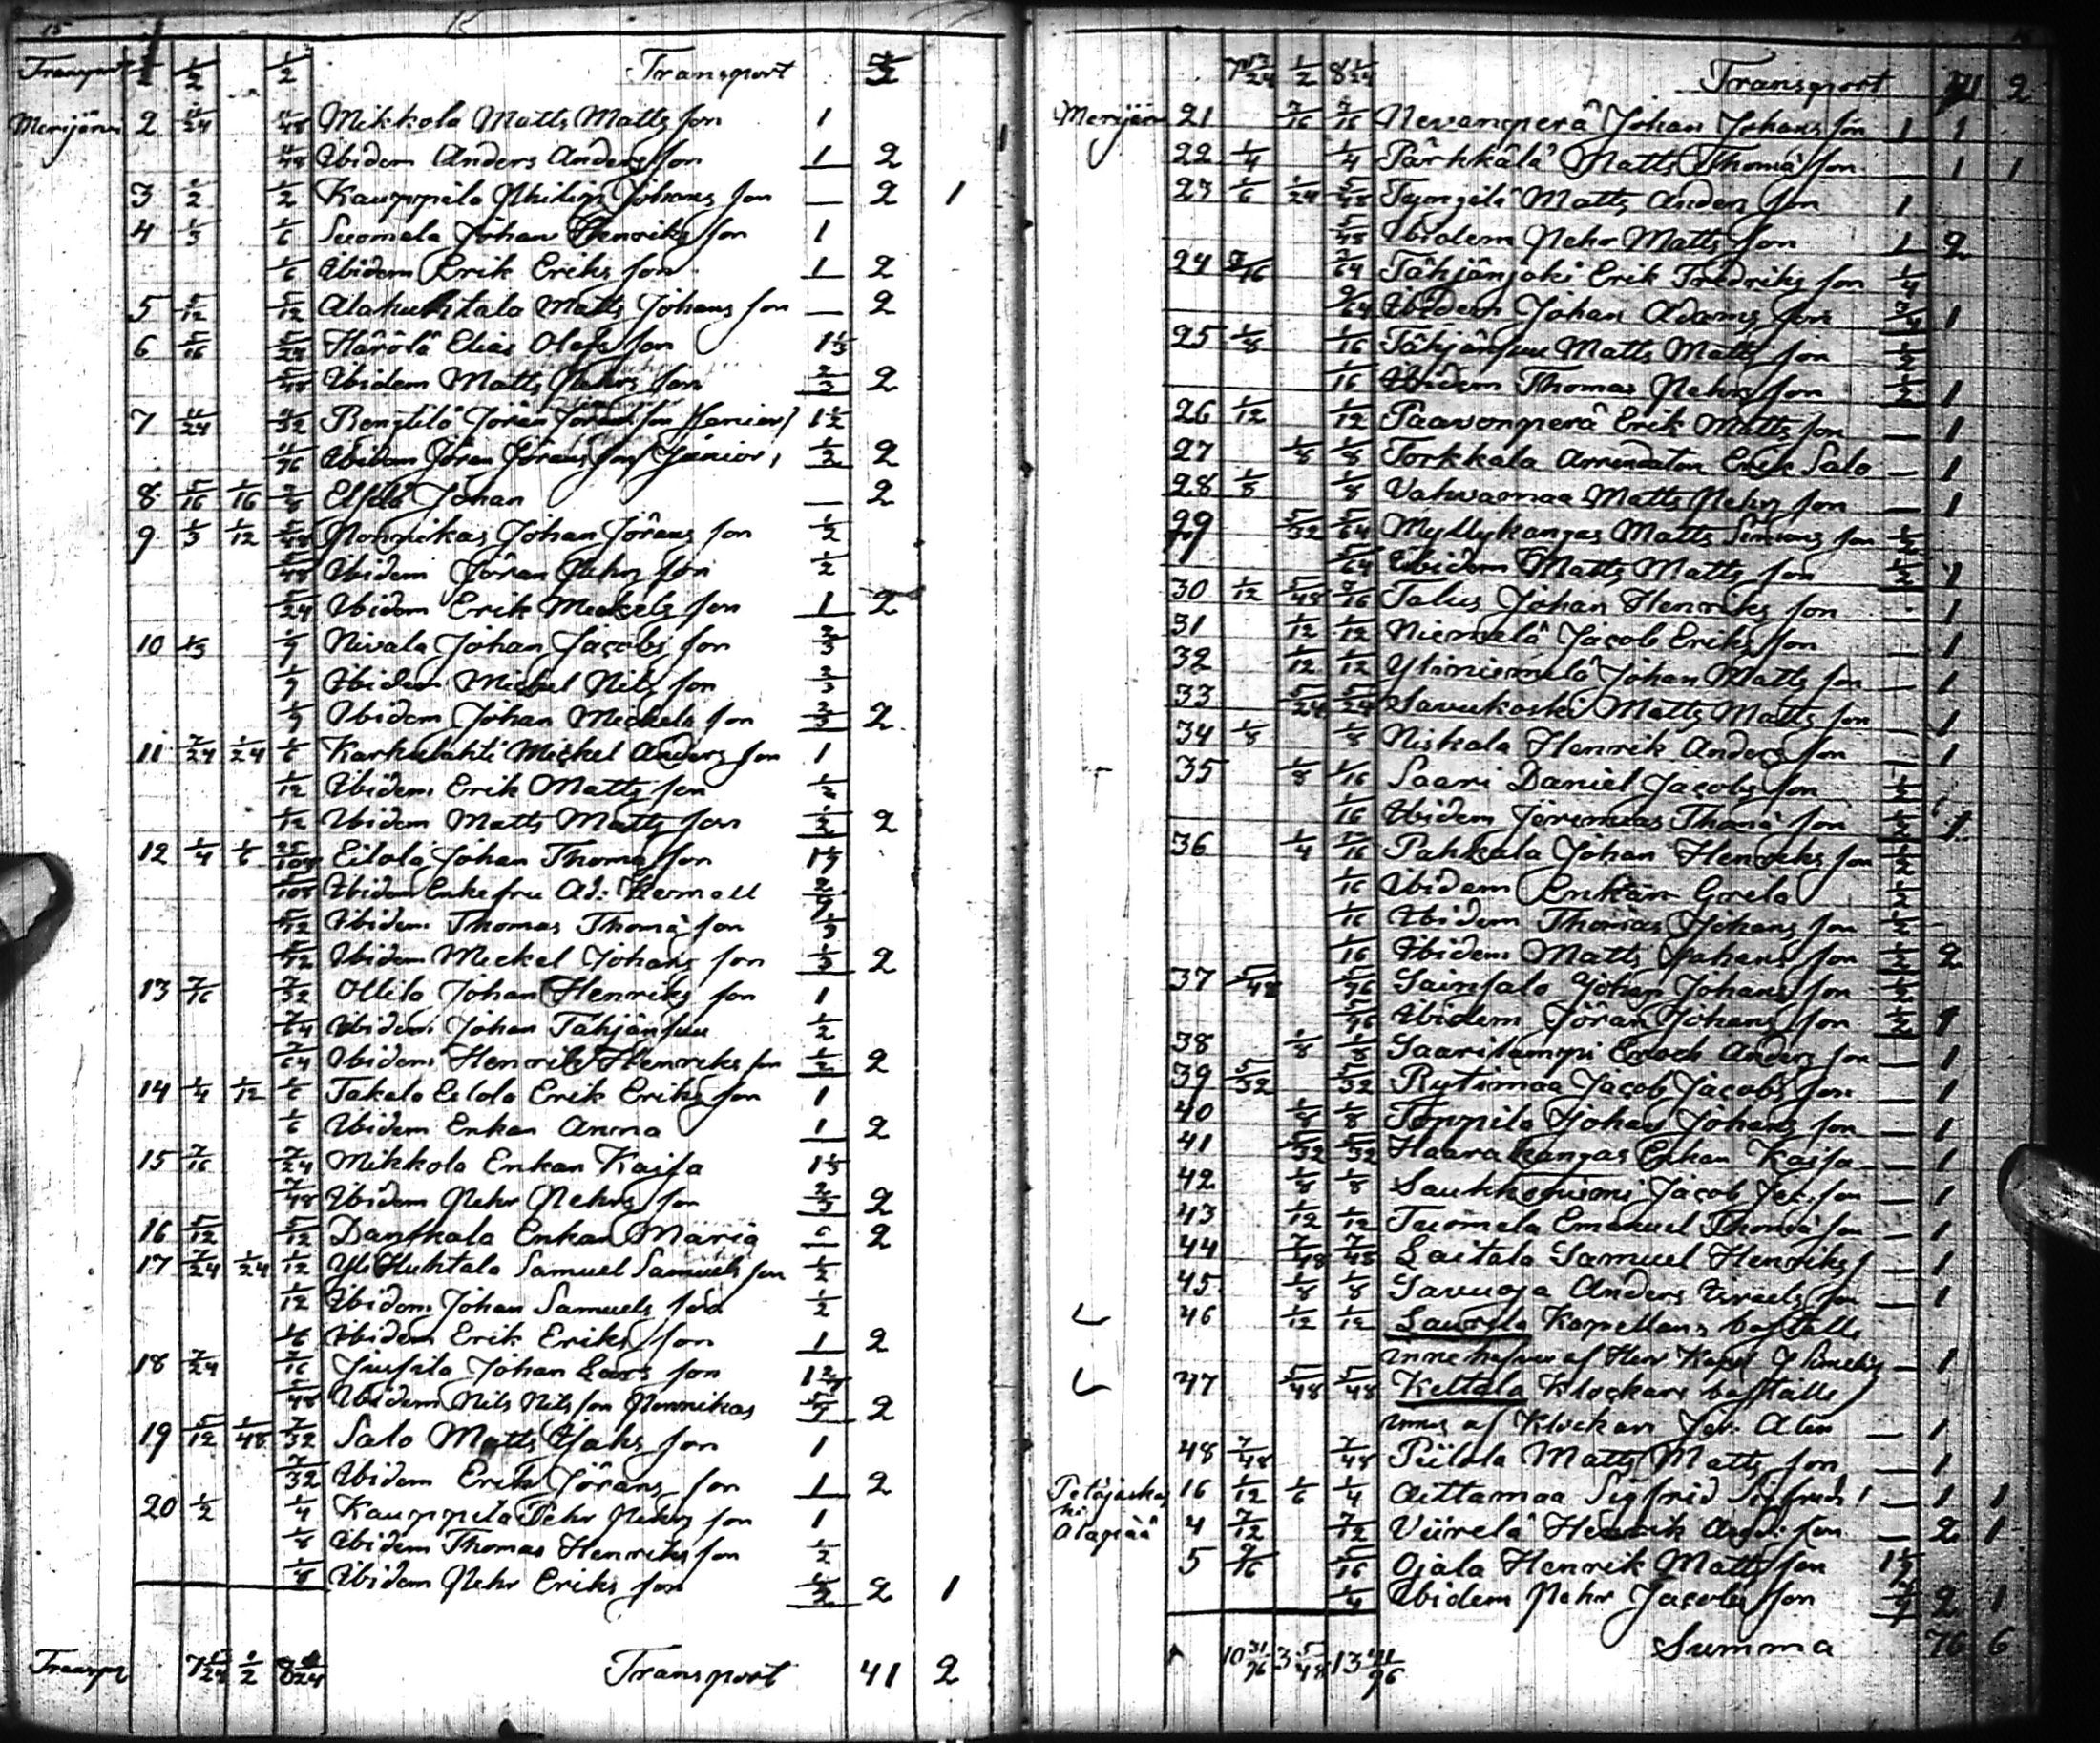 15
Transport 1/2 1/2 1/2 Transport
Merijärvi 2 11/24 11/48 Mikkola Matts Matts son 1
11/48 Ibidem Anders Anders son 1 2
3 1/2 1/2 Kauppila Philip Johans son — 2 1
4 1/3 1/6 Suomela Johan Henriks son 1
1/6 Ibidem Erik Eriks son 1 2
5 5/12 5/12 Alahuhtala Matts Johans son — 2
6 5/16 5/24 Härölä Elias Olofs son 1 1/3
5/48 Ibidem Matts Pehrs son 2/3 2
7 11/24 11/32 Bengtilä Jöran Jörans son senior 1 1/2
11/96 Ibidem Jöran Jörans son Junior 1/2 2
8 5/16 1/16 3/8 Elsilä Johan — 2
9 1/3 1/12 5/48 Nonnikas Johan Jörans son 1/2
5/48 Ibidem Jöran Jahns son 1/2
5/24 Ibidem Erik Mickels son 1 2
10 1/3 1/9 Nivala Johan Jacobs son 2/3
1/9 Ibidem Mickel Nils son 2/3
1/9 Ibidem Johan Mickels son 2/3 2
11 7/24 1/24 1/6 Karhulahti Mickel Anders son 1
1/12 Ibidem Erik Matts son 1/2
1/12 Ibidem Matts Matts son 1/2 2
12 1/4 1/6 25/108 Eilola Johan Thomæ son 1 1/9
5/108 Ibidem Enkefru Ad: 2/9
5/72 Ibidem Thomas Thomæ son 1/3
5/72 Ibidem Mickel Johans son 1/3 2
13 7/16 7/32 Ollila Johan Henriks son 1
7/64 Ibidem Johan Tähjänsuu 1/2
7/64 Ibidem Henrik Henriks son 1/2 2
14 1/4 1/12 1/6 Takalo Eilola Erik Eriks son 1
1/6 Ibidem Enkan Anna 1 2
15 7/16 7/24 Mikkola Enkan Kajsa 1 1/3
7/48 Ibidem Pehr Pehrs son 2/3 2
16 5/12 5/12 Danskala Enkan Maria — 2
17 7/24 1/24 1/12 Yli Huhtala Samuel Samuels son 1/2
1/12 Ibidem Johan Samuels son 1/2
1/6 Ibidem Erik Eriks son 1 2
18 7/24 Jussila Johan Lars son
5/48 Ibidem Nils Nils son Nonnikas 2
19 5/12 1/48 7/32 Salo Matts Jahns son 1
7/32 Ibidem Erik Jörans son 1 2
20 1/2 1/4 Kauppila Pehr Pehrs son 1
1/8 Ibidem Thomas Henriks son 1/2
1/8 Ibidem Pehr Eriks son 1/2 2 1
Transp Transport 41 2
1/2 Transport 41 2
Merijärvi 21 7/16 7/16 Nevanperä Johan Johans son 1 1
22 1/4 1/4 Pärkkälä Matts Thomæ son 1 1
23 1/6 1/24 5/48 Matts Anders son 1
5/48 Ibidem Pehr Matts son 1 2
24 3/16 3/64 Tähjänjoki Erik Fredriks son 1/4
9/64 Ibidem Johan Adams son 3/4 1
25 1/8 1/16 Tähjänsuu Matts Matts son 1/2
1/16 Ibidem Thomas Pehrs son 1/2 1
26 1/12 1/12 Paavonperä Erik Matts son — 1
27 1/8 1/8 Torkkala Arrendator Erik Salo — 1
28 1/8 1/8 Vahvamaa Matts Pehrs son — 1
29 5/32 5/64 Myllykangas Matts Simons son 1/2
5/64 Ibidem Matts Matts son 1/2 1
30 1/12 5/48 3/16 Talus Johan Henriks son 1
31 1/12 1/12 Niemelä Jacob Eriks son 1
32 1/12 1/12 Yliniemelä Johan Matts son — 1
33 5/24 5/24 Savukoski Matts Matts son — 1
34 1/8 1/8 Niskala Henrik Anders son — 1
35 1/8 1/16 Saari Daniel Jacobs son 1/2
1/16 Ibidem Jeremias Thomæ son 1/2 1
36 1/4 1/16 Pahkala Johan Henriks son 1/2
1/16 Ibidem Enkan Greta 1/2
1/16 Ibidem Thomas Johans son 1/2
1/16 Ibidem Matts Johans son 1/2 2
37 5/48 5/96 Sainsalo Johan Johans son 1/2
5/96 Ibidem Jöran Johans son 1/2 1
38 1/8 1/8 Saarilampi Enoch Anders son — 1
39 5/32 5/32 Rytimaa Jacob Jacobs son — 1
40 1/8 1/8 Toppila Johan Johans son — 1
41 5/32 5/32 Haarakangas Enkan Kaisa — 1
42 1/8 1/8 Saukkoniemi Jacob son — 1
43 1/12 1/12 Tuomela Emanuel Thomæ son — 1
44 7/48 7/48 Laitala Samuel Henriks — 1
45 1/8 1/8 Savuoja Anders Israels son — 1
46 1/12 1/12 Laurila Kapellans boställe
innehafves af Herr Kapel J Simelius — 1
47 5/48 5/48 Keltala Klockare boställe
innes af Klockan Alén — 1
48 7/48 7/48 Piilola Matts Matts son — 1
16 1/12 1/6 1/4 Aittamaa Sigfrid Sigfrids — 1 1
Olapää 4 7/12 7/12 Viirelä Henrik And: son — 2 1
5 9/16 5/16 Ojala Henrik Matts son
1/4 Ibidem Pehr Jacobs son 2 1
10 31/96 3 5/48 13 41/96 Summa 76 6